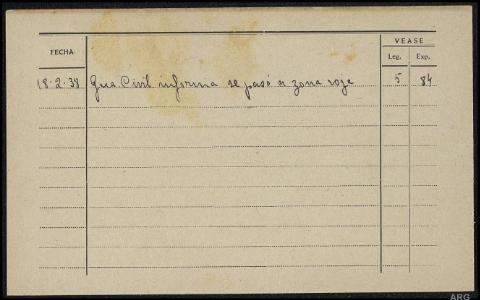 VEASE
FECHA Leg. Exp.
18-2-38 Gua. Civil informa se pasó a zona roja 5 84
ARG